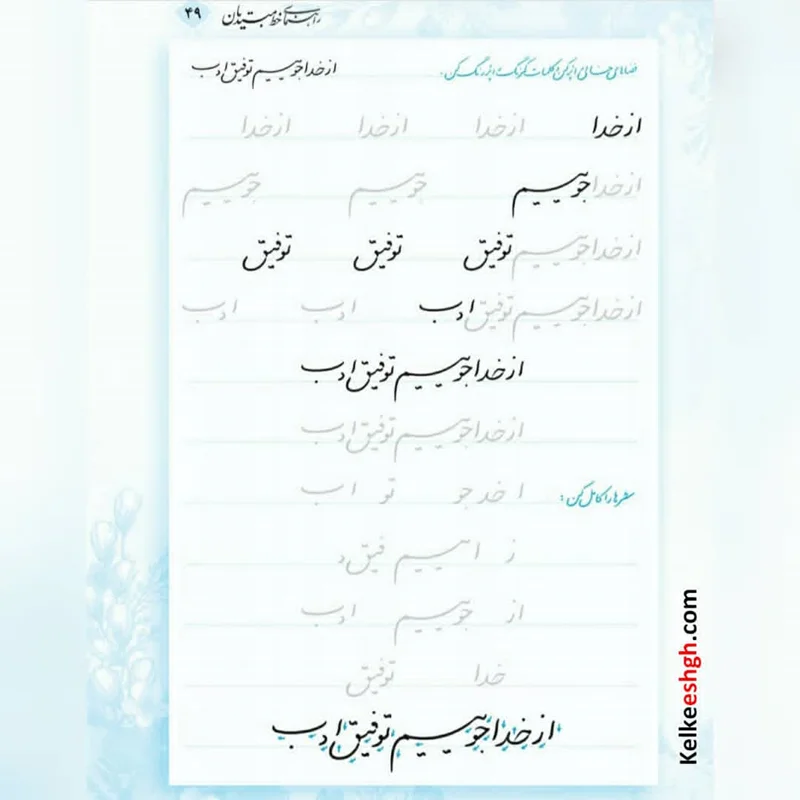 راهنمای خط مبتدیان ۴۹
فضاهای خالی را پر کن و کلمات کمرنگ را پررنگ کن. از خدا جوییم توفیق ادب
از خدا از خدا از خدا از خدا
از خدا جوییم جوییم جوییم
از خدا جوییم توفیق توفیق توفیق
از خدا جوییم توفیق ادب ادب ادب
از خدا جوییم توفیق ادب
از خدا جوییم توفیق ادب
سطرها را کامل کن: ا خد جو تو ا ب
ز ا ییم فیق د
از جوییم ادب
خدا توفیق
از خدا جوییم توفیق ادب
Kelkeeshgh.com